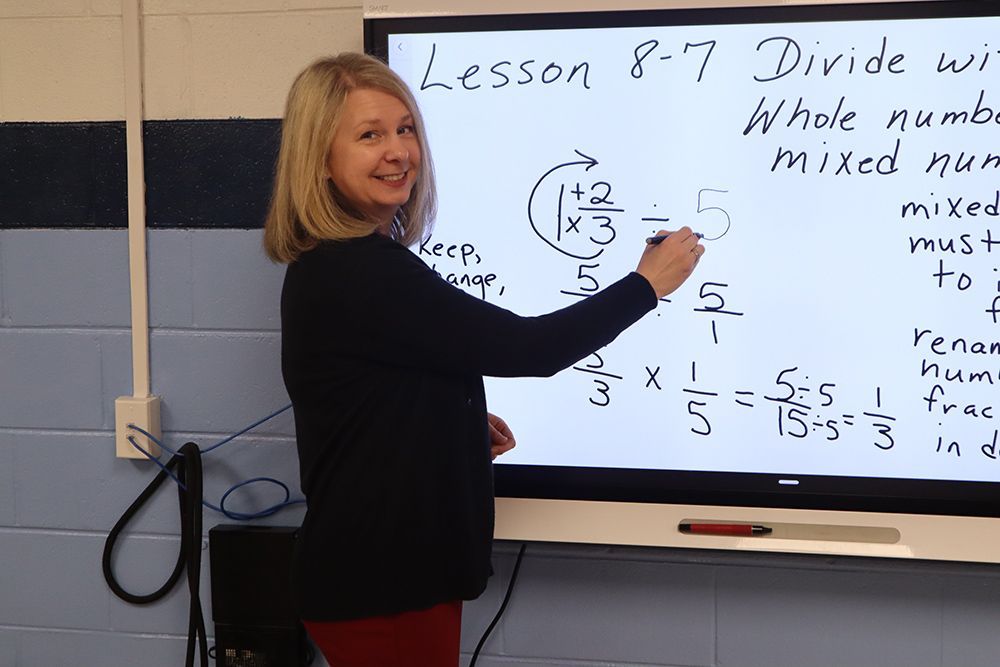 SMART
Lesson 8-7 Divide wi
Whole numbe
mixed num
1 +2 / x3 ÷ 5
Keep,
change,
5 ÷ 5/1
5/3 x 1/5 = 5÷5 / 15÷5 = 1/3
mixed
must
to i
f
renam
num
frac
in d